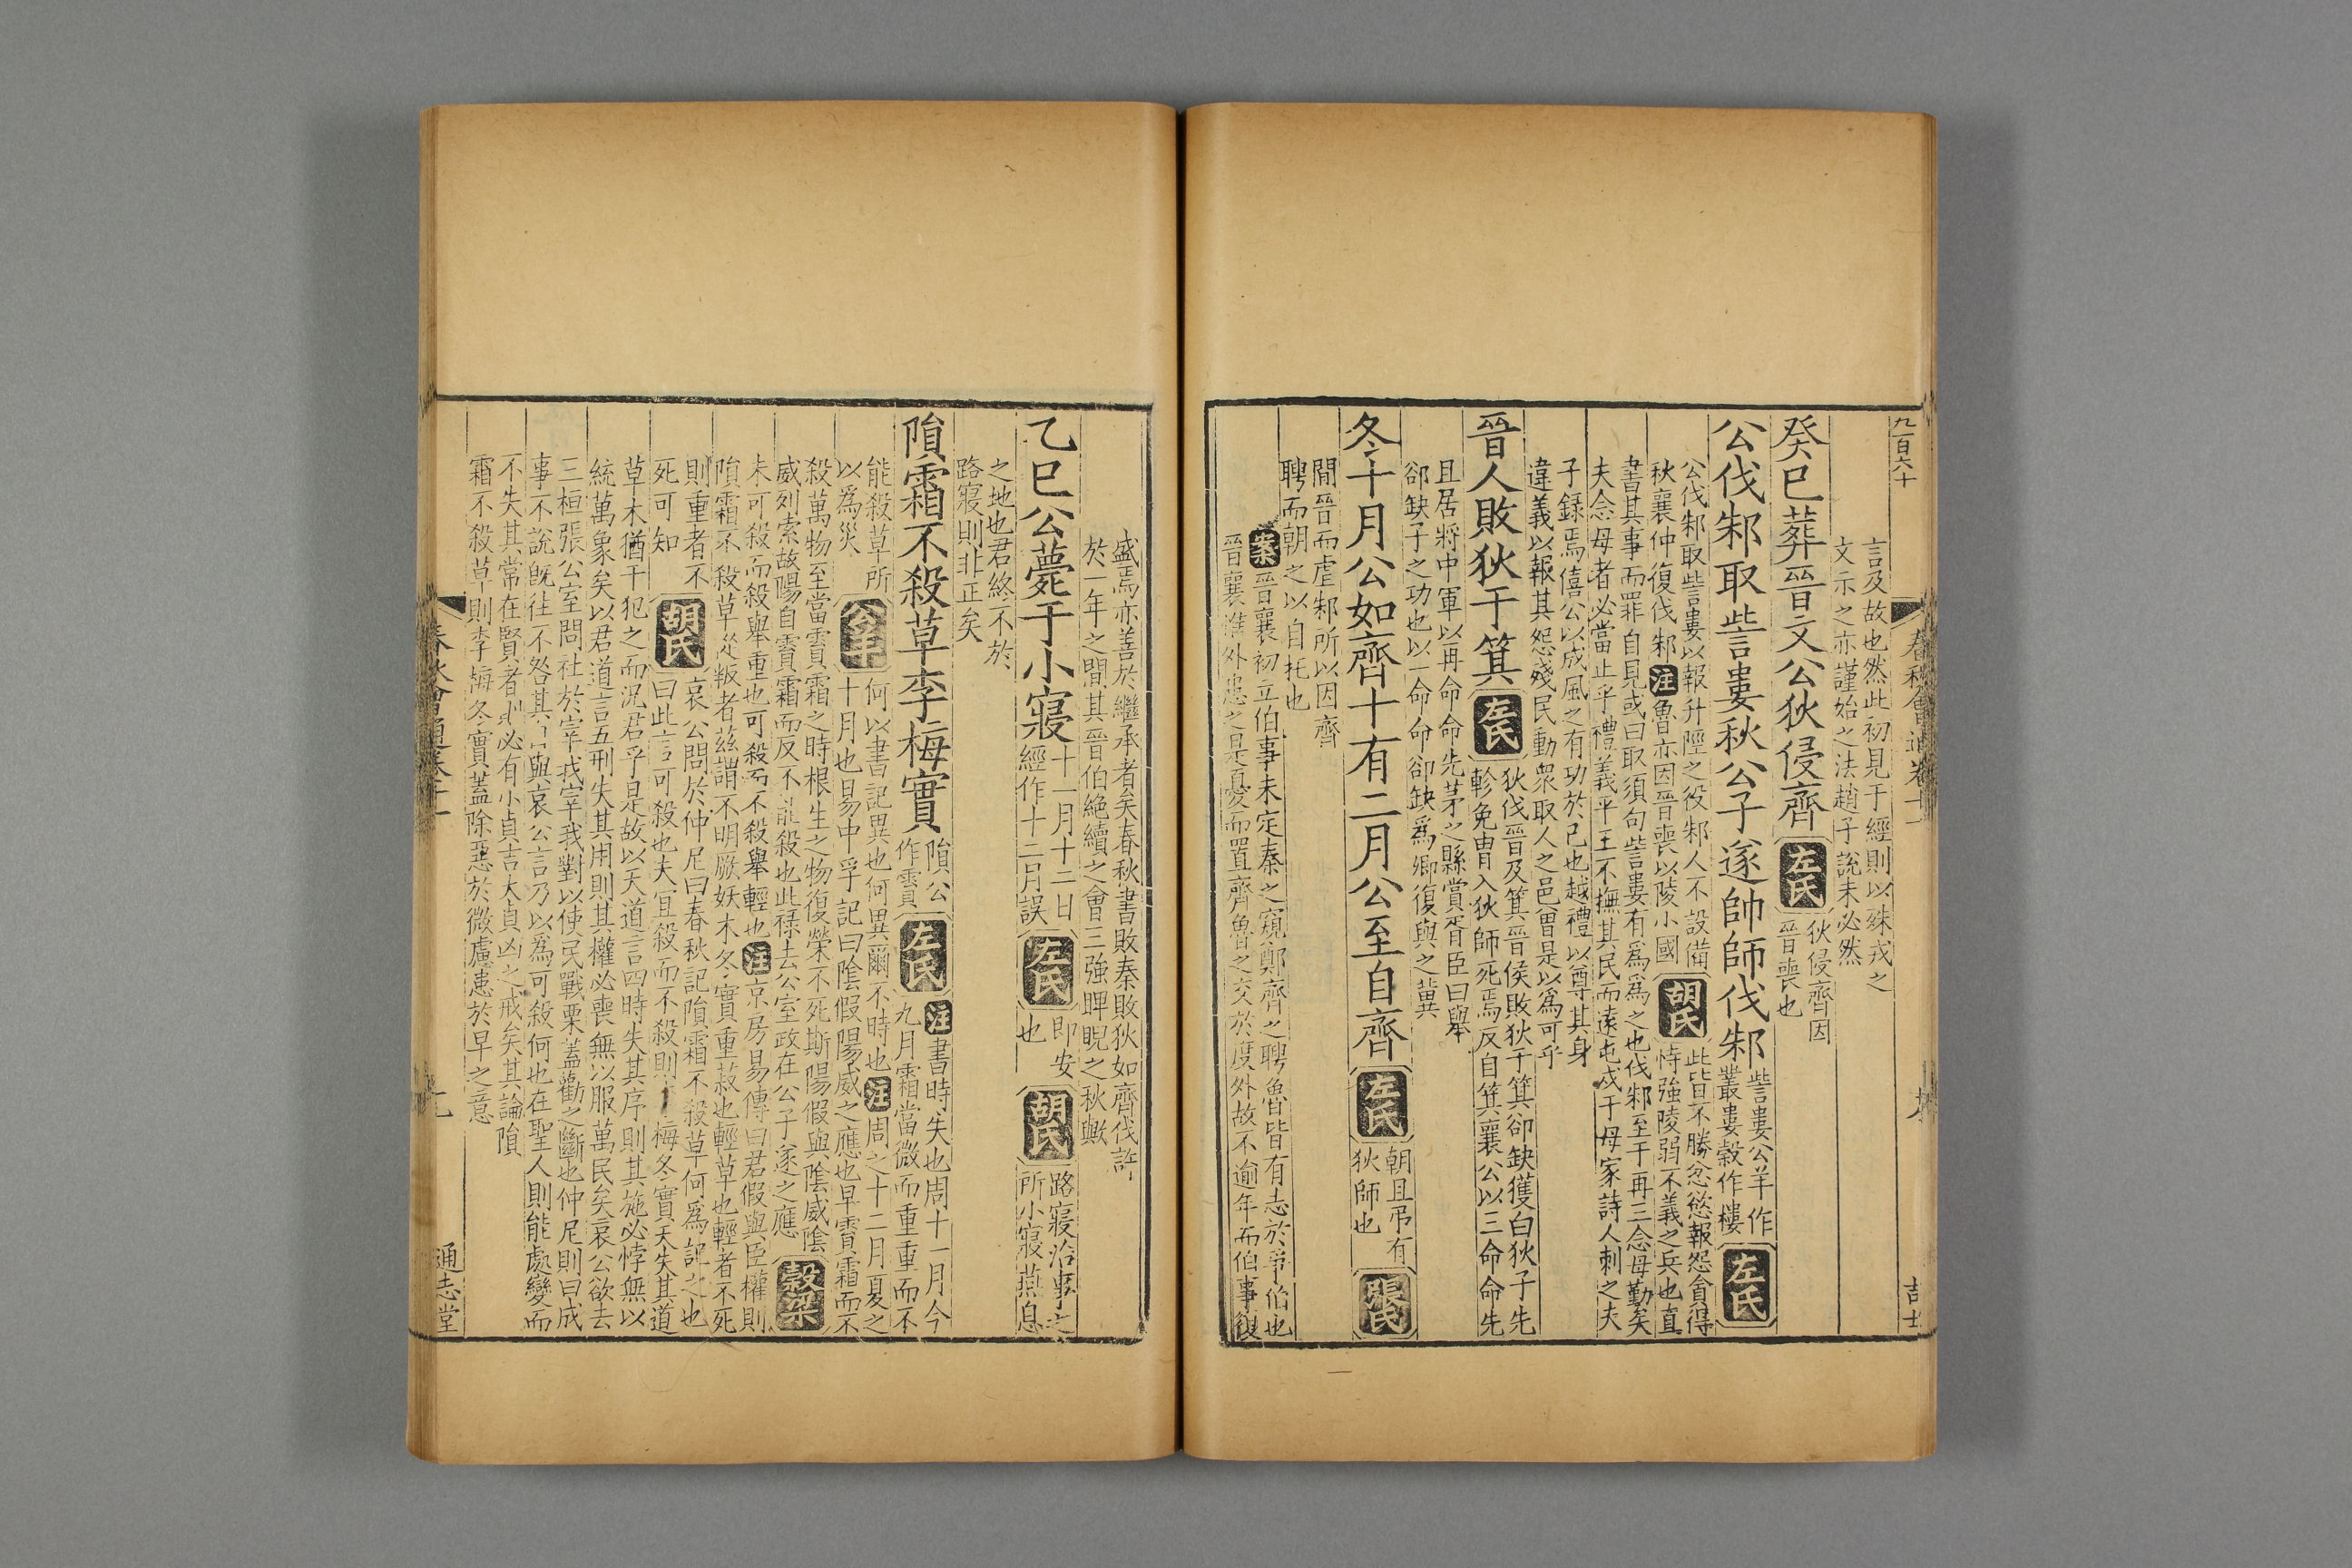 九百六十
春秋會通卷十一
吉士
言及故也然此初見于經則以殊戎之
文示之亦謹始之法趙子說未必然
癸巳葬晉文公狄侵齊
左氏
狄侵齊因
晉喪也
公伐邾取訾婁秋公子遂帥師伐邾
訾婁公羊作
叢婁穀作樓
左氏
公伐邾取訾婁以報升陘之役邾人不設備
秋襄仲復伐邾
注
魯亦因晉喪以陵小國
胡氏
此皆不勝忿慾報怨貪得
恃強陵弱不義之兵也直
書其事而罪自見或曰取須句訾婁有為為之也伐邾至于再三念母勤矣
夫念母者必當止乎禮義平王不撫其民而遠屯戍于母家詩人刺之夫
子錄焉僖公以成風之有功於己也越禮以尊其身
違義以報其怨殘民動衆取人之邑曾是以為可乎
晉人敗狄于箕
左氏
狄伐晉及箕晉侯敗狄于箕卻缺獲白狄子先
軫免冑入狄師死焉反自箕襄公以三命命先
且居將中軍以再命命先茅之縣賞胥臣曰舉
卻缺子之功也以一命命卻缺爲卿復與之冀
冬十月公如齊十有二月公至自齊
左氏
朝且弔有
狄師也
張氏
閒晉而虐邾所以因齊
聘而朝之以自托也
案
晉襄初立伯事未定秦之窺鄭齊之聘魯皆有志於爭伯也
晉襄惟外患之是憂而置齊魯之交於度外故不逾年而伯事復
盛焉亦善於繼承者矣春秋書敗秦敗狄如齊伐許
於一年之間其晉伯絶續之會三強睥睨之秋歟
乙巳公薨于小寢
十一月十二日
經作十二月誤
左氏
即安
也
胡氏
路寢治事之
所小寢燕息
之地也君終不於
路寢則非正矣
隕霜不殺草李梅實
隕公
作霣
左氏
注
書時失也周十一月今
九月霜當微而重重而不
能殺草所
以爲災
公羊
何以書記異也何異爾不時也
注
周之十二月夏之
十月也易中孚記曰陰假陽威之應也早霣霜而不
殺萬物至當霣霜之時根生之物復榮不死斯陽假與陰威陰
威列索故陽自霣霜而反不能殺也此祿去公室政在公子遂之應
穀梁
未可殺而殺舉重也可殺而不殺舉輕也
注
京房易傳曰君假與臣權則
隕霜不殺草從叛者茲謂不明厥妖木冬實重菽也輕草也輕者不死
則重者不
死可知
胡氏
哀公問於仲尼曰春秋記隕霜不殺草何爲記之也
曰此言可殺也夫宜殺而不殺則李梅冬實天失其道
草木猶干犯之而況君乎是故以天道言四時失其序則其施必悖無以
統萬象矣以君道言五刑失其用則其權必喪無以服萬民矣哀公欲去
三桓張公室問社於宰我宰我對以使民戰栗蓋勸之斷也仲尼則曰成
事不說旣往不咎其與哀公言乃以爲可殺何也在聖人則能處變而
不失其常在賢者則必有小貞吉大貞凶之戒矣其論隕
霜不殺草則李梅冬實蓋除惡於微慮患於早之意
春秋會通卷十一
通志堂